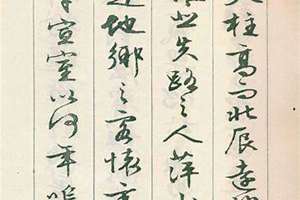 天柱高而北辰遠
悲失路之人萍
是他鄉之客懷
宣室以何年嗚